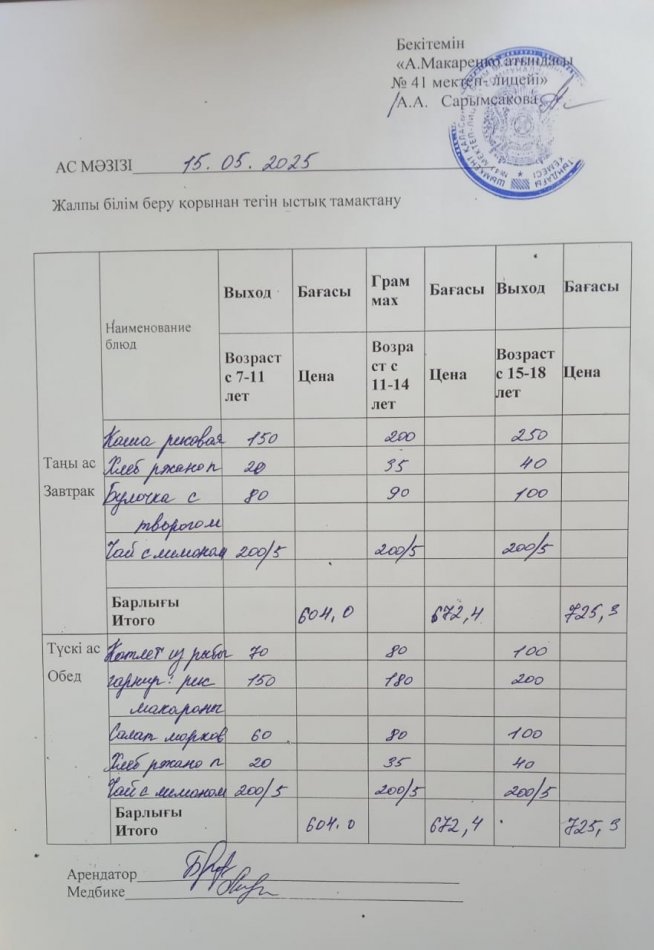 Бекітемін
«А.Макаренко атындағы
№ 41 мектеп- лицейі»
А.А. Сарымсакова
АС МӘЗІЗІ 15. 05. 2025
Жалпы білім беру қорынан тегін ыстық тамақтану
Наименование блюд Выход Бағасы Грам мах Бағасы Выход Бағасы
Возраст с 7-11 лет Цена Возра ст с 11-14 лет Цена Возраст с 15-18 лет Цена
Таңы ас
Завтрак
Каша рисовая 150 200 250
Хлеб ржано п 20 35 40
Булочка с 80 90 100
творогом
Чай с лимоном 200/5 200/5 200/5
Барлығы
Итого 604,0 672,4 725,3
Түскі ас
Обед
Котлет из рыбы 70 80 100
гарнир: рис 150 180 200
макароны
Салат морков 60 80 100
Хлеб ржано п 20 35 40
Чай с лимоном 200/5 200/5 200/5
Барлығы
Итого 604.0 672,4 725,3
Арендатор
Медбике